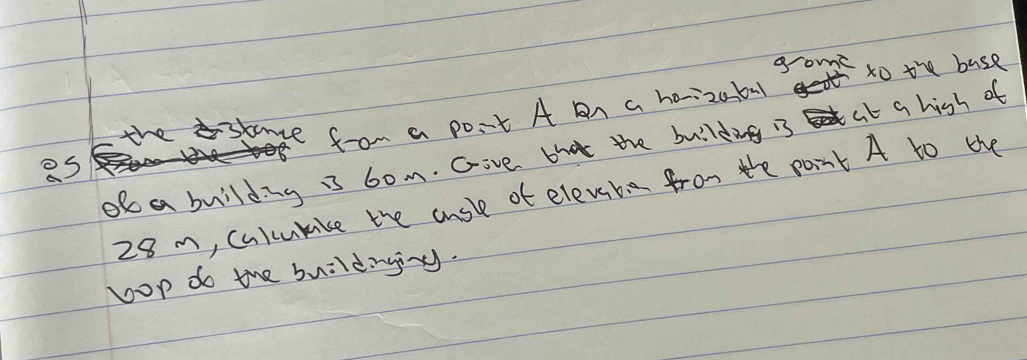 25 the distance from a point A on a horizontal ground to the base
of a building is 60 m. Given that the building is at a high of
28 m, Calculate the angle of elevation from the point A to the
top of the buildinging.